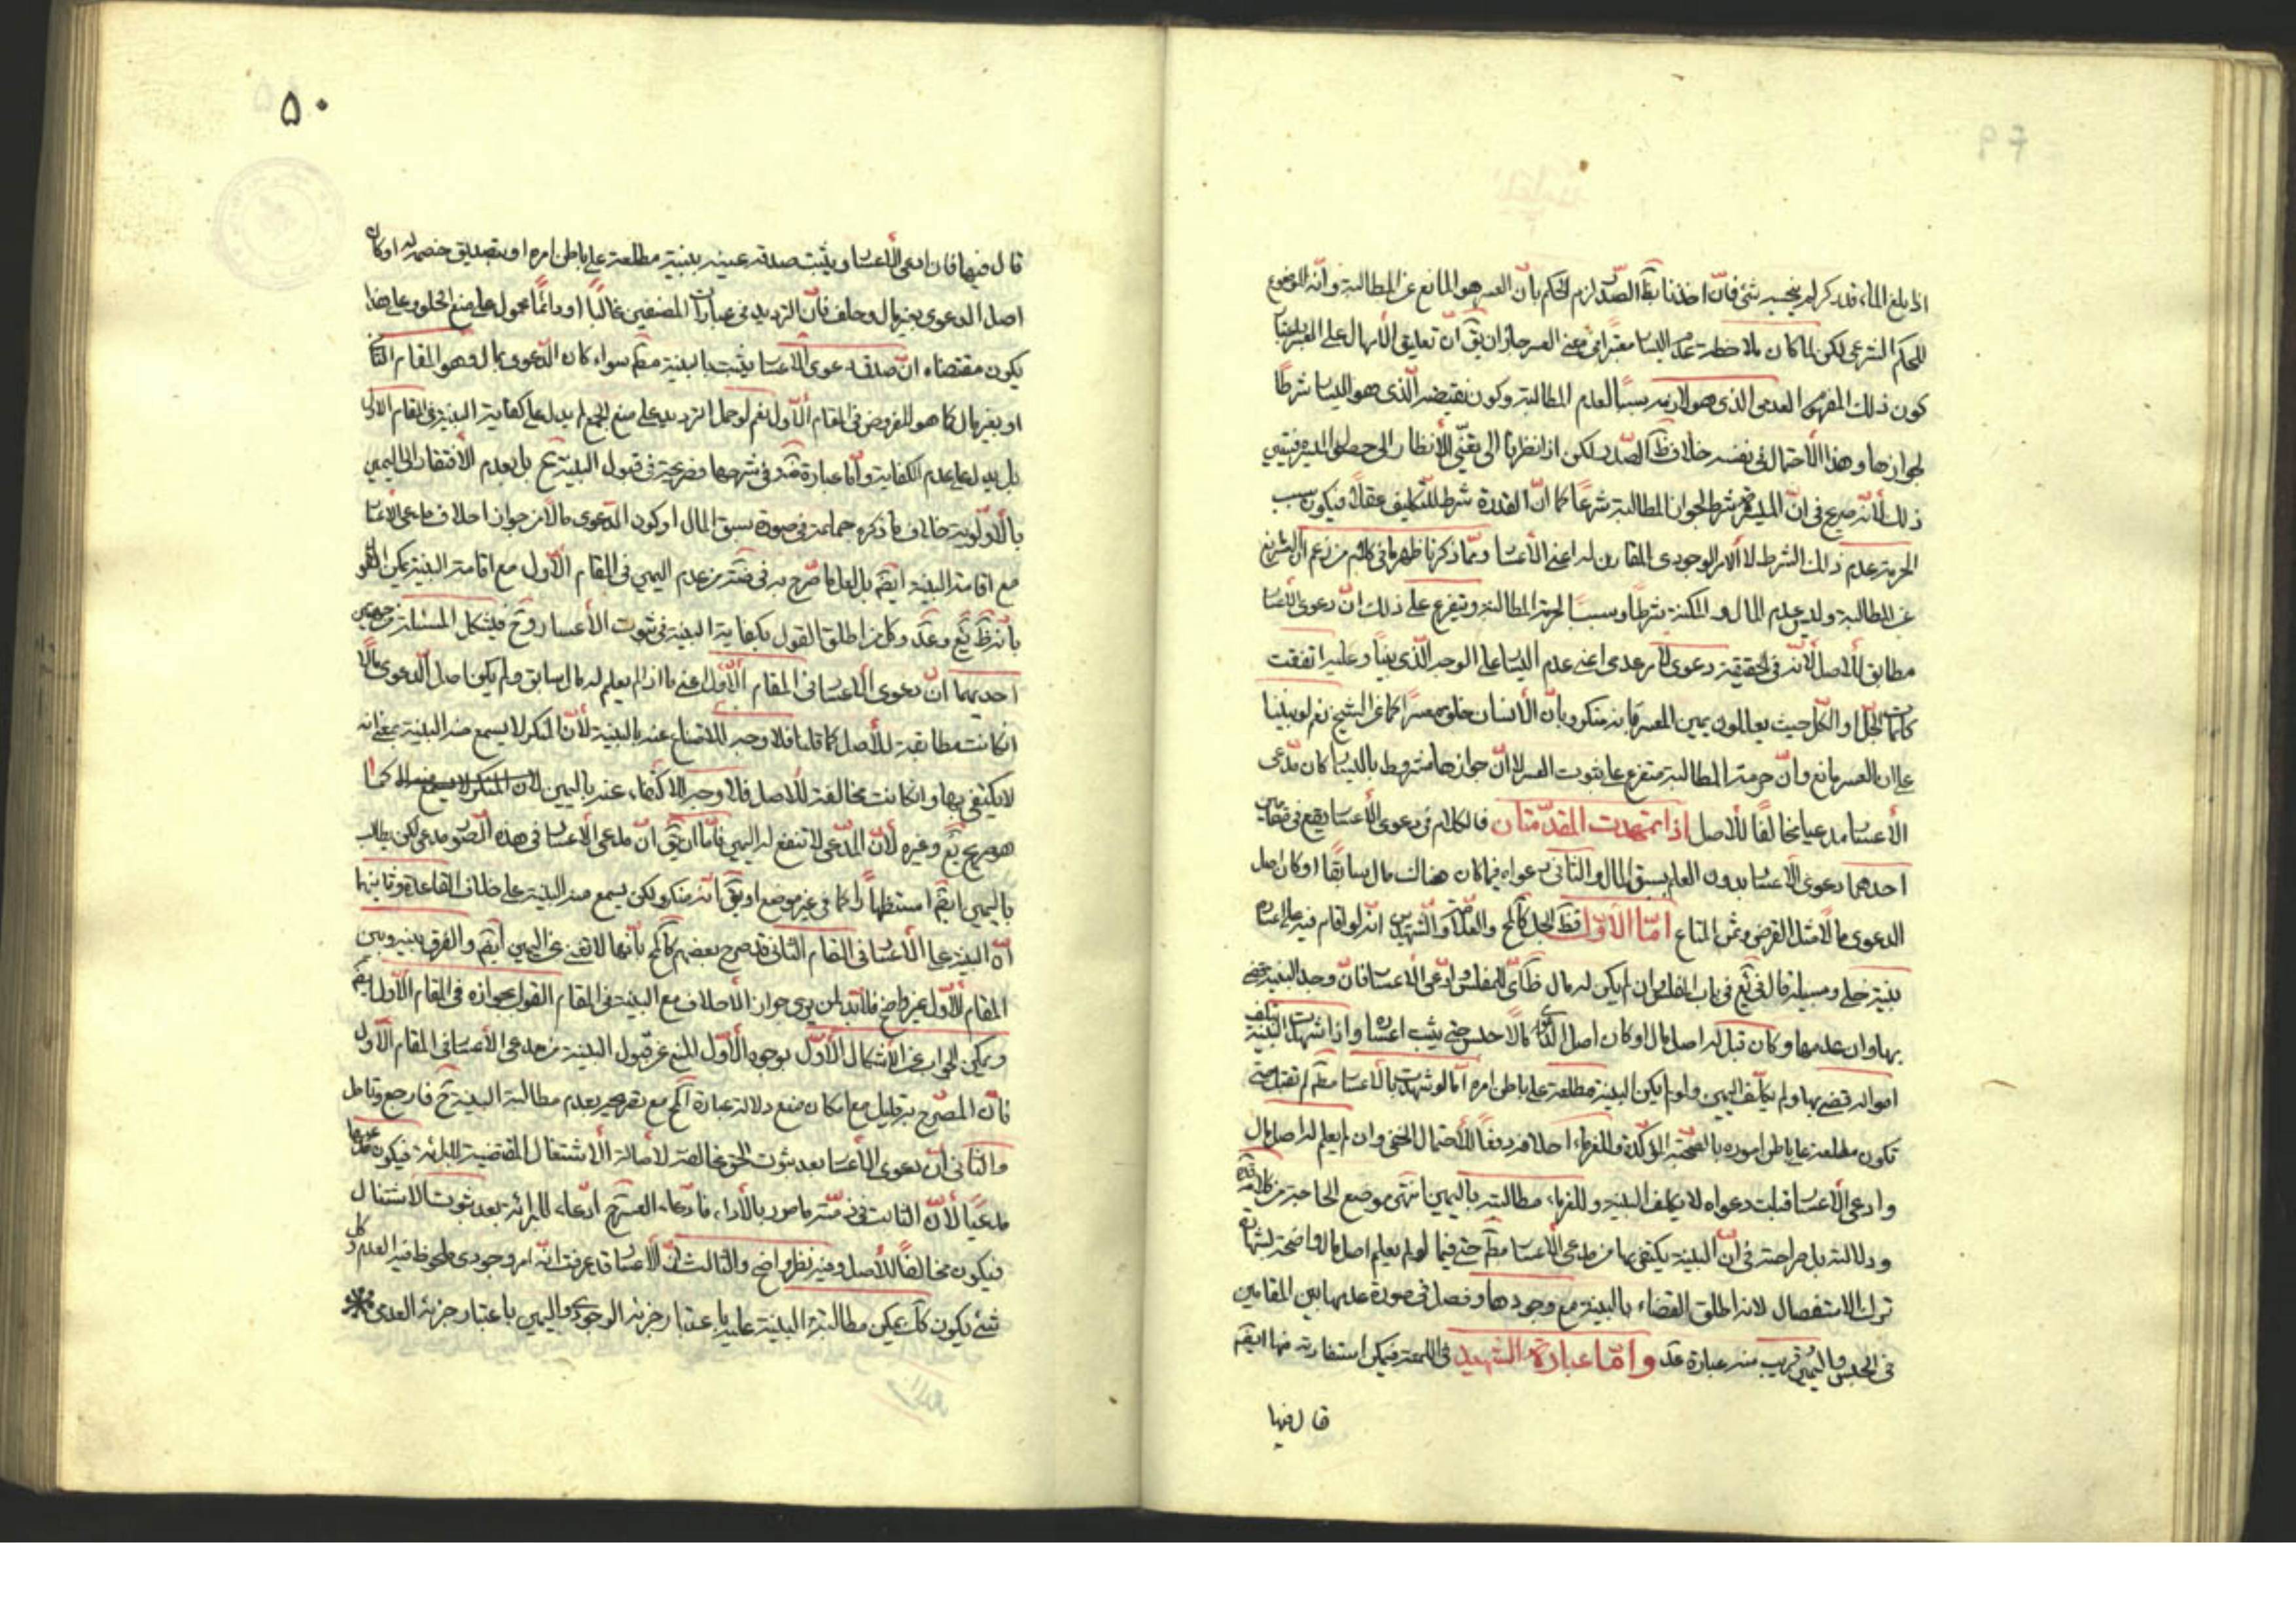 اذا بلغ الماء قدر كر لم ينجسه شئ فان اخذنا بظ الصدر لزم الحكم بان العسر هو المانع عن المطالبة وانه الموضوع
للحكم الشرعى لكن لما كان ملاحظة عدم اليسار معتبرا فى معنى العسر جاز ان يق ان تعليق الامهال على العسر باعتبار
كون ذلك المفهوم العدمى الذى هو لازمه سببا لعدم المطالبة وكون نقيضه الذى هو اليسار شرطا
لجوازها وهذا الاحتمال فى نفسه خلاف ظ الصدر لكن اذا نظرنا الى الانظار الى حصول الميسرة
ذلك لانه صريح فى ان الميسرة شرط لجواز المطالبة شرعا كما ان القدرة شرط للتكليف عقلا فيكون سبب
الحرمة عدم ذلك الشرط لا الامر الوجودى المقارن له اعنى الاعسار ومما ذكرنا ظهر ما فى كلام من زعم ان العسر مانع
عن المطالبة وليس عدم المال والمكنة شرطا وسببا لحرمة المطالبة ويتفرع على ذلك ان دعوى الاعسار
مطابق للاصل لانه فى الحقيقة دعوى لامر عدمى اعنى عدم اليسار على الوجه الذى بينا وعليه اتفقت
كلمات الجل او الكل حيث يعللون يمين المعسر بانه منكر وبان الانسان خلق معسرا كما عن الشيخ نعم لو بنينا
على ان العسر مانع وان حرمة المطالبة متفرع على ثبوت العسر لا ان جوازها مشروط باليسار كان مدعى
الاعسار مدعيا مخالفا للاصل اذا تمهدت المقدمتان فالكلام فى دعوى الاعسار يقع فى مقامين
احدهما دعوى الاعسار بدون العلم بسبق المال والثانى دعواه فيما كان هناك مال سابقا او كان اصل
الدعوى مالا مثل القرض وثمن المتاع اما الاول فظ الجل كالمح والعلامة والشهيدين انه لو اقام فيه على اعساره
بينة خلى وسبيله قال فى يع فى باب المفلس وان لم يكن له مال ظ اى للمفلس وادعى الاعسار فان وجد البينة قضى
بها وان عدمها وكان قبل له اصل مال او كان اصل الدعوى مالا حبس حتى يثبت اعساره واذا شهدت البينة بتلف
امواله قضى بها ولم يكلف اليمين ولو لم يكن البينة مطلعة على باطن امره اما لو شهدت بالاعسار مطم لم تقبل حتى
تكون مطلعة على باطن اموره بالصحبة المؤكدة وللغرماء احلافه دفعا للاحتمال الخفى وان لم يعلم له اصل مال
وادعى الاعسار قبلت دعواه لا يكلف البينة وللغرماء مطالبته باليمين انتهى موضع الحاجة من كلامه
ودلالته بل صراحته فى ان البينة يكتفى بها من مدعى الاعسار مطم حتى فيما لو لم يعلم اصل مال واضحة بشهادة
ترك الاستفصال لانه اطلق القضاء بالبينة مع وجودها وفصل فى صورة عدمها بين المقامين
فى الحبس واليمين قريب منه عبارة عد واما عبارة الشهيد فى اللمعة فيمكن استفادته منها ايضم
قال فيها
٥٠
قال فيها فان ادعى الاعسار ويثبت صدقه عينه ببينة مطلعة على باطن امره او بتصديق خصمه له او كان
اصل الدعوى بغير مال وحلف فان الترديد فى عبارات المصنفين غالبا او دائما محمول على منع الخلو وعلى هذا
يكون مقتضاه ان صدق دعوى الاعسار يثبت بالبينة مطم سواء كان الدعوى بمال وهو المقام الثانى
او بغير مال كما هو المفروض فى المقام الاول نعم لو حمل الترديد على منع الجمع لم يدل على كفاية البينة فى المقام الاول
بل يدل على عدم الكفاية واما عبارة ضه فى شرحها فصريحة فى قبول البينة ح بل بعدم الافتقار الى اليمين
بالاولوية خلاف ما ذكره جماعة فى صورة سبق المال او كون الدعوى مالا من جواز احلاف مدعى الاعسار
مع اقامة البينة ايضم بل لعل ما صرح به فى ضه من عدم اليمين فى المقام الاول مع اقامة البينة يمكن القول
بانه ظ يع وعد وكل من اطلق القول بكفاية البينة فى ثبوت الاعسار وح فيشكل المسئلة من جهتين
احديهما ان دعوى الاعسار فى المقام الاول اعنى ما اذا لم يعلم له مال سابق ولم يكن اصل الدعوى مالا
ان كانت مطابقة للاصل كما قلنا فلا وجه للاقتناع عنه بالبينة لان المنكر لا يسمع منه البينة بمعنى انه
لا يكتفى بها وان كانت مخالفة للاصل فلا وجه لاكتفاء عنه باليمين لان المنكر لا يسمع منه كما
هو صريح يع وغيره لان المدعى لا تنفع له اليمين فاما ان يق ان مدعى الاعسار فى هذه الصورة مدعى لكن يطالب
باليمين ايضم استظهارا كما فى غير موضع او يق انه منكر ولكن يسمع منه البينة على خلاف القاعدة وثانيهما
ان البينة على الاعسار فى المقام الثانى قد صرح بعضهم كالمح بانها لا تغنى عن اليمين ايضم والفرق بينه وبين
المقام الاول غير واضح فلا بد لمن يرى جواز الاحلاف مع البينة فى المقام القول بجوازه فى المقام الاول ايضم
ويمكن الجواب عن الاشكال الاول بوجوه الاول المنع عن قبول البينة من مدعى الاعسار فى المقام الاول
فان المصرح به قليل مع امكان منع دلالة عبارة المح مع تصريحه بعدم مطالبة البينة ح فارجع وتامل
والثانى ان دعوى الاعسار بعد ثبوت الحق مخالفة لاصالة الاشتغال المقتضية للبرائة فيكون مدعيها
مدعيا لان الثابت فى ذمته مامور بالاداء فادعاء العسر ح ادعاء للبرائة بعد ثبوت الاشتغال
فيكون مخالفا للاصل وفيه نظر واضح والثالث ان الاعسار قد عرفت انه امر وجودى ملحوظ فيه العدم وكل
شئ يكون كك يمكن مطالبة البينة عليه باعتبار جزئه الوجودى واليمين باعتبار جزئه العدمى